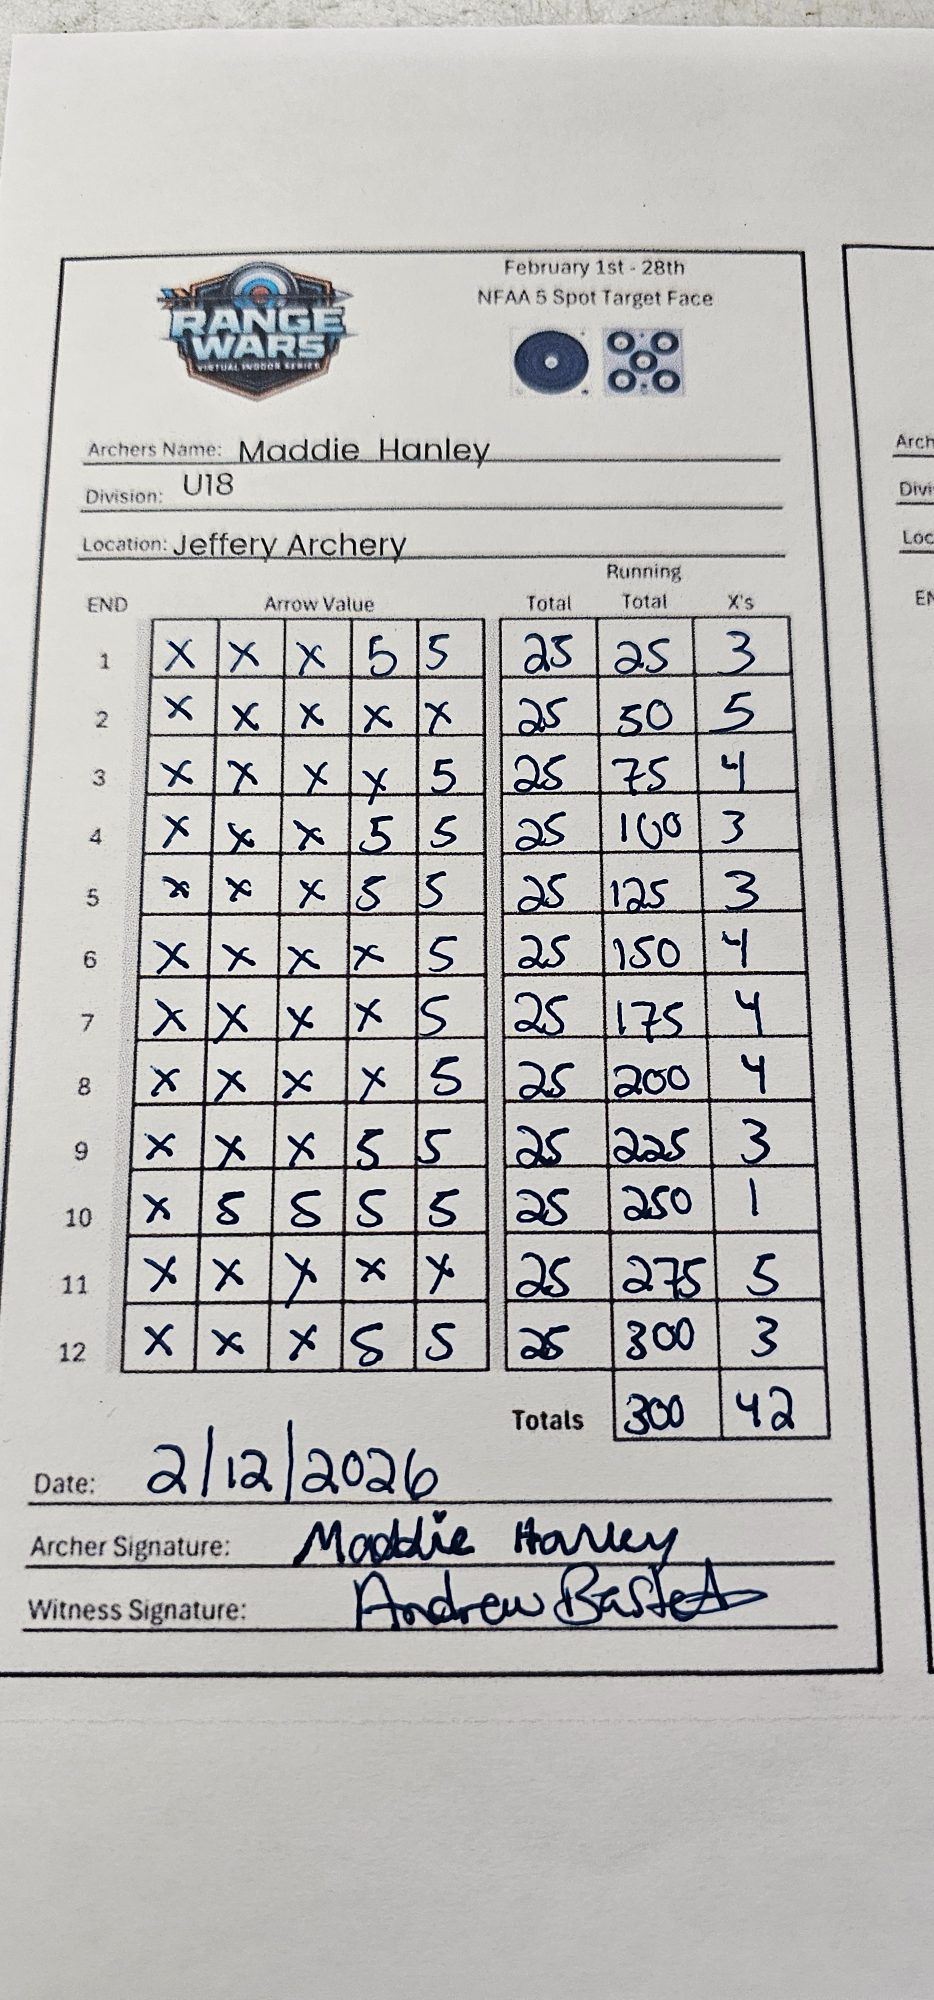 RANGE
WARS
VIRTUAL INDOOR SERIES
February 1st - 28th
NFAA 5 Spot Target Face
Archers Name: Maddie Hanley
Division: U18
Location: Jeffery Archery
Running
END Arrow Value Total Total X's
1 X X X 5 5 25 25 3
2 X X X X X 25 50 5
3 X X X X 5 25 75 4
4 X X X 5 5 25 100 3
5 X X X 5 5 25 125 3
6 X X X X 5 25 150 4
7 X X X X 5 25 175 4
8 X X X X 5 25 200 4
9 X X X 5 5 25 225 3
10 X 5 5 5 5 25 250 1
11 X X X X X 25 275 5
12 X X X 5 5 25 300 3
Totals 300 42
Date: 2/12/2026
Archer Signature: Maddie Hanley
Witness Signature: Andrew
Arch
Divi
Loc
EN